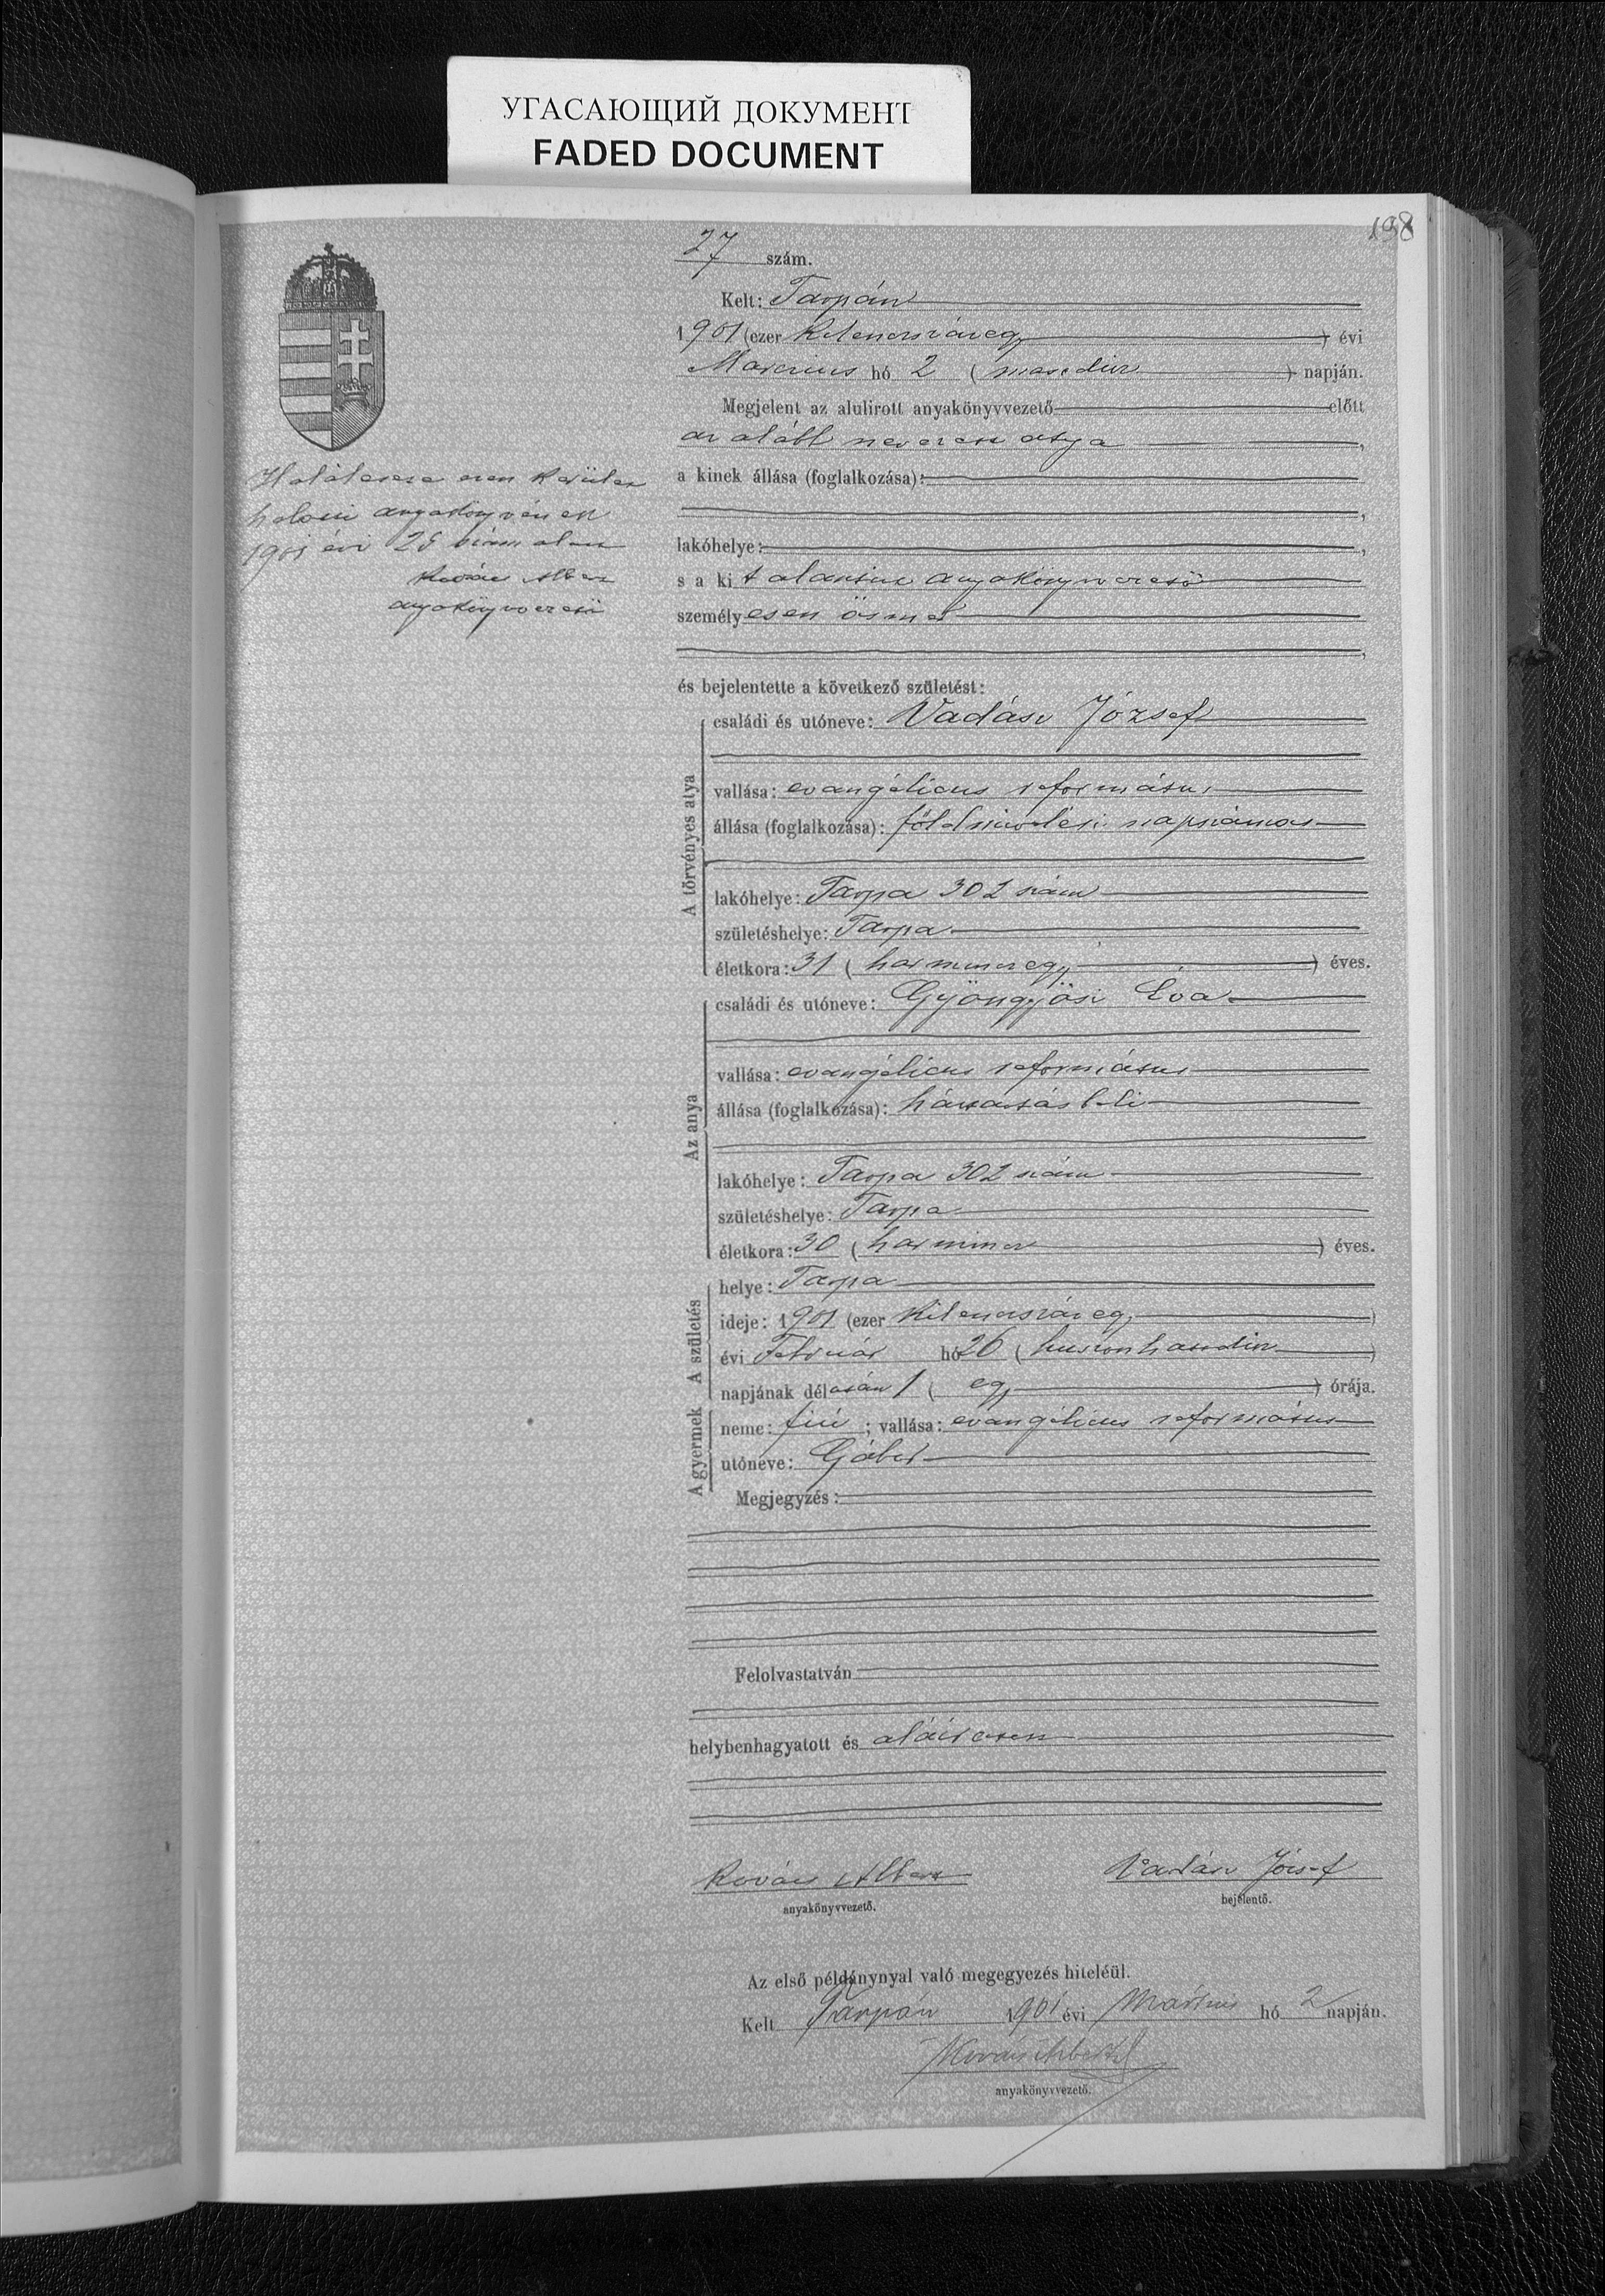 УГАСАЮЩИЙ ДОКУМЕНТ
FADED DOCUMENT
198
27 szám.
Kelt: Tarpán
1901 (ezer kilencszázegy) évi
Marczius hó 2 (második) napján.
Megjelent az alulirott anyakönyvvezető előtt
az alább nevezett atya,
a kinek állása (foglalkozása):
lakóhelye:
s a kit alantirt anyakönyvvezető
személyesen ösmer
és bejelentette a következő születést:
A törvényes atya
családi és utóneve: Vadász József
vallása: evangélicus református
állása (foglalkozása): földmivelési napszámos
lakóhelye: Tarpa 302 szám
születéshelye: Tarpa
életkora: 31 (harminczegy) éves.
Az anya
családi és utóneve: Gyöngyösi Éva
vallása: evangélicus református
állása (foglalkozása): háztartásbeli
lakóhelye: Tarpa 302 szám
születéshelye: Tarpa
életkora: 30 (harmincz) éves.
A születés
helye: Tarpa
ideje: 1901 (ezer kilenczszázegy)
évi Február hó 26 (huszonhatodik)
napjának délután 1 (egy) órája.
A gyermek
neme: fiú; vallása: evangélicus református
utóneve: Gábor
Megjegyzés:
Felolvastatván
helybenhagyatott és aláiratott
Kovács Albert
anyakönyvvezető.
Vadász József
bejelentő.
Az első példánynyal való megegyezés hiteléül.
Kelt Tarpán 1901 évi Március hó 2 napján.
Kovács Albert
anyakönyvvezető.
Halálesete ezen kerület
halotti anyakönyvének
1901 évi szám alatt
Kovács Albert
anyakönyvvezető